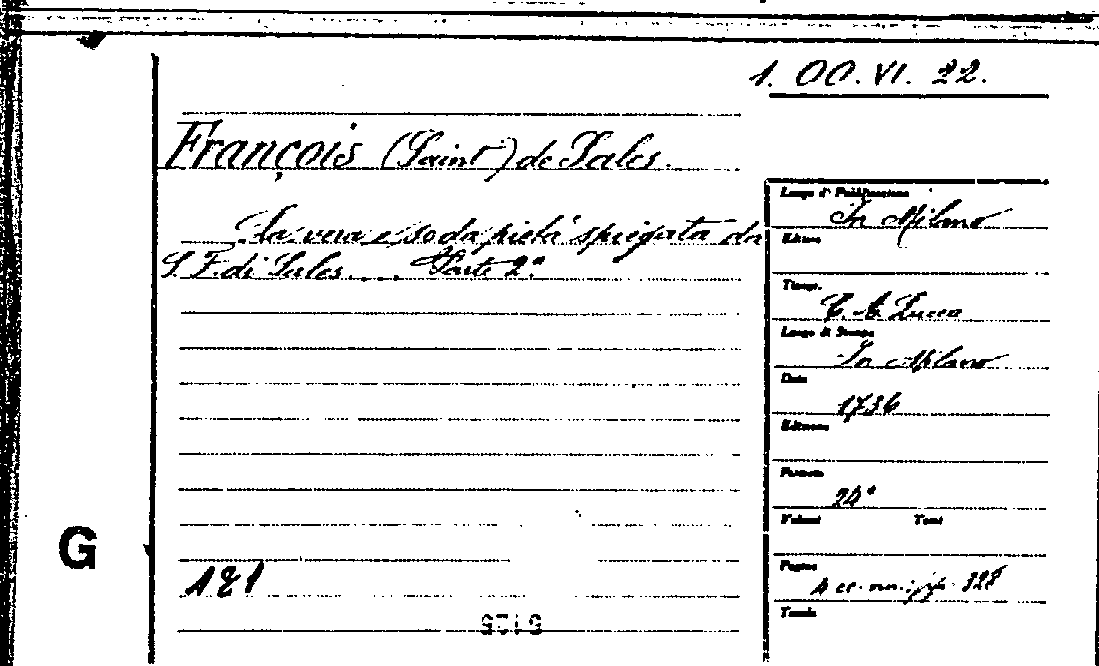 1. OO. VI. 22.
François (Saint) de Sales.
La vera e soda pietà spiegata da
S. F. di Sales.... Parte 2ª
Luogo d' Pubblicazione
In Milano
Editore
Tipogr.
Luogo di Stampa
In Milano
Data
1736
Edizione
Formato
24°
Volumi Tomi
Pagine
328
Tavole
G
181